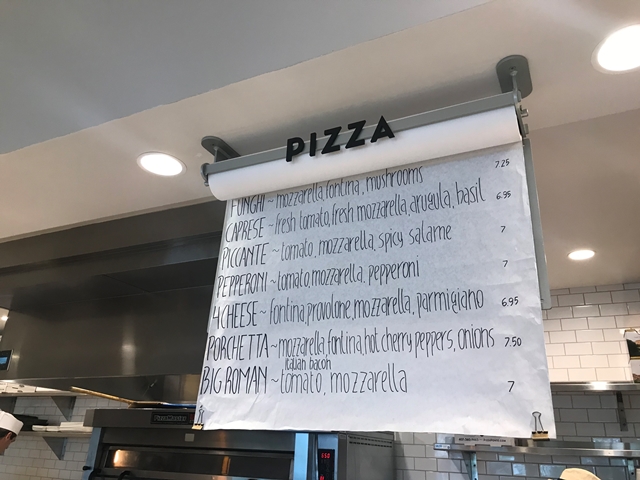 PIZZA
FUNGHI ~ mozzarella, fontina, mushrooms 7.25
CAPRESE ~ fresh tomato, fresh mozzarella, arugula, basil 6.95
PICCANTE ~ tomato, mozzarella, spicy salame 7
PEPPERONI ~ tomato, mozzarella, pepperoni 7
4 CHEESE ~ fontina, provolone, mozzarella, parmigiano 6.95
PORCHETTA ~ mozzarella, fontina, hot cherry peppers, onions 7.50
italian bacon
BIG ROMAN ~ tomato, mozzarella 7